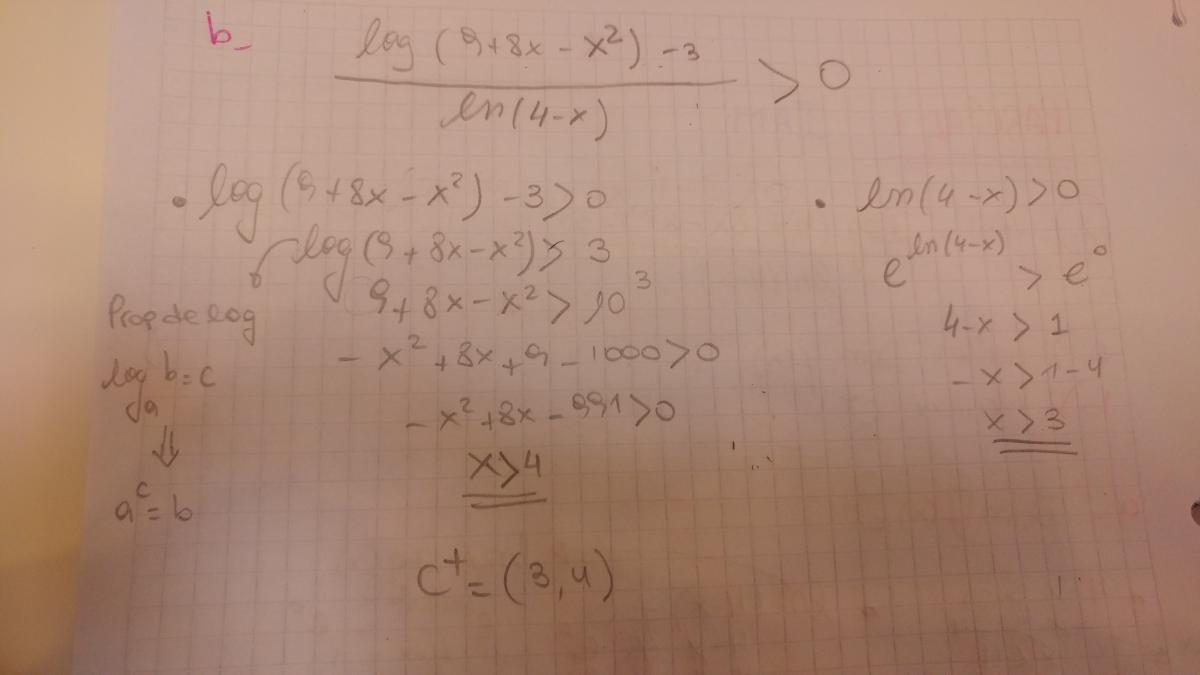 b-
log (9+8x-x²) -3
ln(4-x)
> 0
• log(9+8x-x²) -3>0
log(9+8x-x²)> 3
9+8x-x² > 10³
-x²+8x+9-1000>0
-x²+8x-991>0
x>4
Prop de log
log_a b=c
⇓
a^c=b
• ln(4-x)>0
e^ln(4-x) > e^0
4-x > 1
-x>1-4
x>3
C⁺=(3,4)